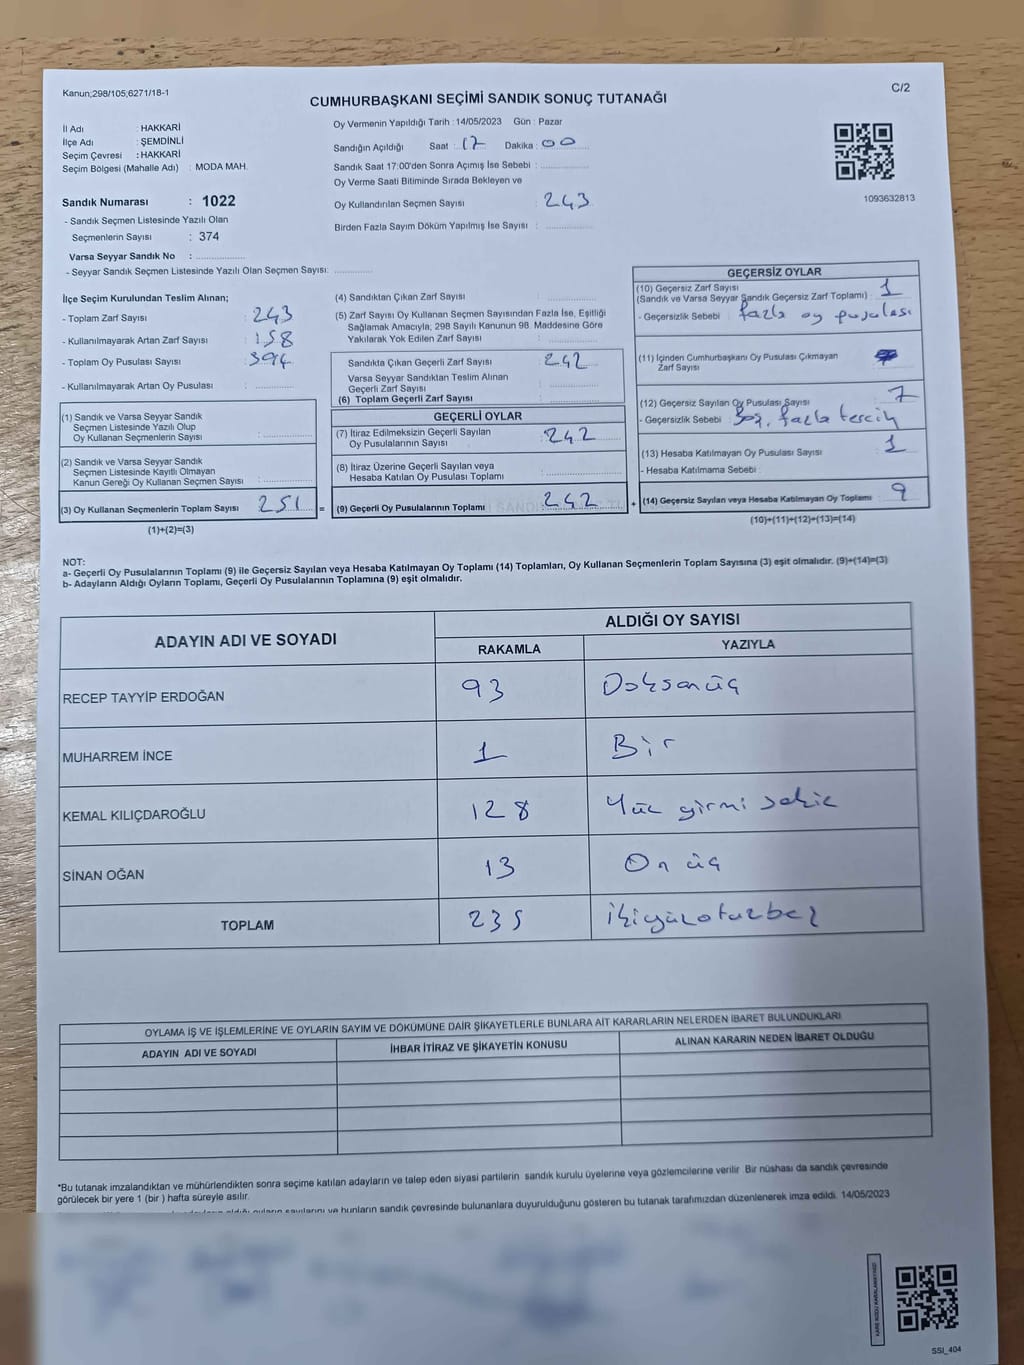 Kanun;298/105;6271/18-1
C/2
CUMHURBAŞKANI SEÇİMİ SANDIK SONUÇ TUTANAĞI
İl Adı : HAKKARİ
İlçe Adı : ŞEMDİNLİ
Seçim Çevresi : HAKKARİ
Seçim Bölgesi (Mahalle Adı) : MODA MAH.
Sandık Numarası : 1022
- Sandık Seçmen Listesinde Yazılı Olan
Seçmenlerin Sayısı : 374
Varsa Seyyar Sandık No : ................
- Seyyar Sandık Seçmen Listesinde Yazılı Olan Seçmen Sayısı: ............
Oy Vermenin Yapıldığı Tarih :14/05/2023 Gün : Pazar
Sandığın Açıldığı Saat : 17 Dakika : 00
Sandık Saat 17:00'den Sonra Açımış İse Sebebi : ................
Oy Verme Saati Bitiminde Sırada Bekleyen ve
Oy Kullandırılan Seçmen Sayısı : 243
Birden Fazla Sayım Döküm Yapılmış İse Sayısı : ................
1093632813
İlçe Seçim Kurulundan Teslim Alınan;
- Toplam Zarf Sayısı : 243
- Kullanılmayarak Artan Zarf Sayısı : 158
- Toplam Oy Pusulası Sayısı : 394
- Kullanılmayarak Artan Oy Pusulası : ............
(1) Sandık ve Varsa Seyyar Sandık
Seçmen Listesinde Yazılı Olup
Oy Kullanan Seçmenlerin Sayısı : ............
(2) Sandık ve Varsa Seyyar Sandık
Seçmen Listesinde Kayıtlı Olmayan
Kanun Gereği Oy Kullanan Seçmen Sayısı : ............
(3) Oy Kullanan Seçmenlerin Toplam Sayısı 251
(1)+(2)=(3)
(4) Sandıktan Çıkan Zarf Sayısı : ............
(5) Zarf Sayısı Oy Kullanan Seçmen Sayısından Fazla İse, Eşitliği
Sağlamak Amacıyla; 298 Sayılı Kanunun 98. Maddesine Göre
Yakılarak Yok Edilen Zarf Sayısı : ............
Sandıkta Çıkan Geçerli Zarf Sayısı : 242
Varsa Seyyar Sandıktan Teslim Alınan
Geçerli Zarf Sayısı : ............
(6) Toplam Geçerli Zarf Sayısı : ............
GEÇERLİ OYLAR
(7) İtiraz Edilmeksizin Geçerli Sayılan
Oy Pusulalarının Sayısı : 242
(8) İtiraz Üzerine Geçerli Sayılan veya
Hesaba Katılan Oy Pusulası Toplamı : ............
=
(9) Geçerli Oy Pusulalarının Toplamı 242
+
GEÇERSİZ OYLAR
(10) Geçersiz Zarf Sayısı
(Sandık ve Varsa Seyyar Sandık Geçersiz Zarf Toplamı) : 1
- Geçersizlik Sebebi : fazla oy pusulası
(11) İçinden Cumhurbaşkanı Oy Pusulası Çıkmayan
Zarf Sayısı
(12) Geçersiz Sayılan Oy Pusulası Sayısı 7
- Geçersizlik Sebebi : Boş, fazla tercih
(13) Hesaba Katılmayan Oy Pusulası Sayısı 1
- Hesaba Katılmama Sebebi :
(14) Geçersiz Sayılan veya Hesaba Katılmayan Oy Toplamı 9
(10)+(11)+(12)+(13)=(14)
NOT:
a- Geçerli Oy Pusulalarının Toplamı (9) ile Geçersiz Sayılan veya Hesaba Katılmayan Oy Toplamı (14) Toplamları, Oy Kullanan Seçmenlerin Toplam Sayısına (3) eşit olmalıdır. (9)+(14)=(3)
b- Adayların Aldığı Oyların Toplamı, Geçerli Oy Pusulalarının Toplamına (9) eşit olmalıdır.
ADAYIN ADI VE SOYADI
ALDIĞI OY SAYISI
RAKAMLA YAZIYLA
RECEP TAYYİP ERDOĞAN 93 Doksanüç
MUHARREM İNCE 1 Bir
KEMAL KILIÇDAROĞLU 128 Yüz yirmi sekiz
SİNAN OĞAN 13 On üç
TOPLAM 235 İkiyüzotuzbeş
OYLAMA İŞ VE İŞLEMLERİNE VE OYLARIN SAYIM VE DÖKÜMÜNE DAİR ŞİKAYETLERLE BUNLARA AİT KARARLARIN NELERDEN İBARET BULUNDUKLARI
ADAYIN ADI VE SOYADI İHBAR İTİRAZ VE ŞİKAYETİN KONUSU ALINAN KARARIN NEDEN İBARET OLDUĞU
*Bu tutanak imzalandıktan ve mühürlendikten sonra seçime katılan adayların ve talep eden siyasi partilerin sandık kurulu üyelerine veya gözlemcilerine verilir. Bir nüshası da sandık çevresinde
görülecek bir yere 1 (bir ) hafta süreyle asılır.
oyların sayılarını ve bunların sandık çevresinde bulunanlara duyurulduğunu gösteren bu tutanak tarafımızdan düzenlenerek imza edildi. 14/05/2023
SSI_404